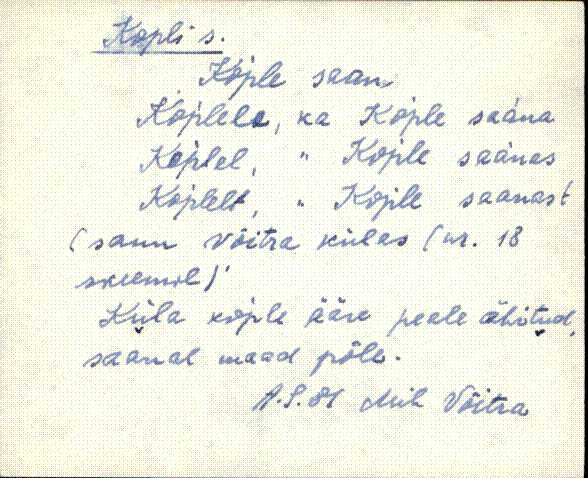 Kopli s.
Kople saan
Koplele, ka Kople saàna
Koplel, " Kople saànas
Koplelt, " Kople saanast
(saun Võitra külas (nr. 18
skeemil)
Küla kople ääre peale ähitud,
saanal maad põle.
A.S. 81 Mih Võitra